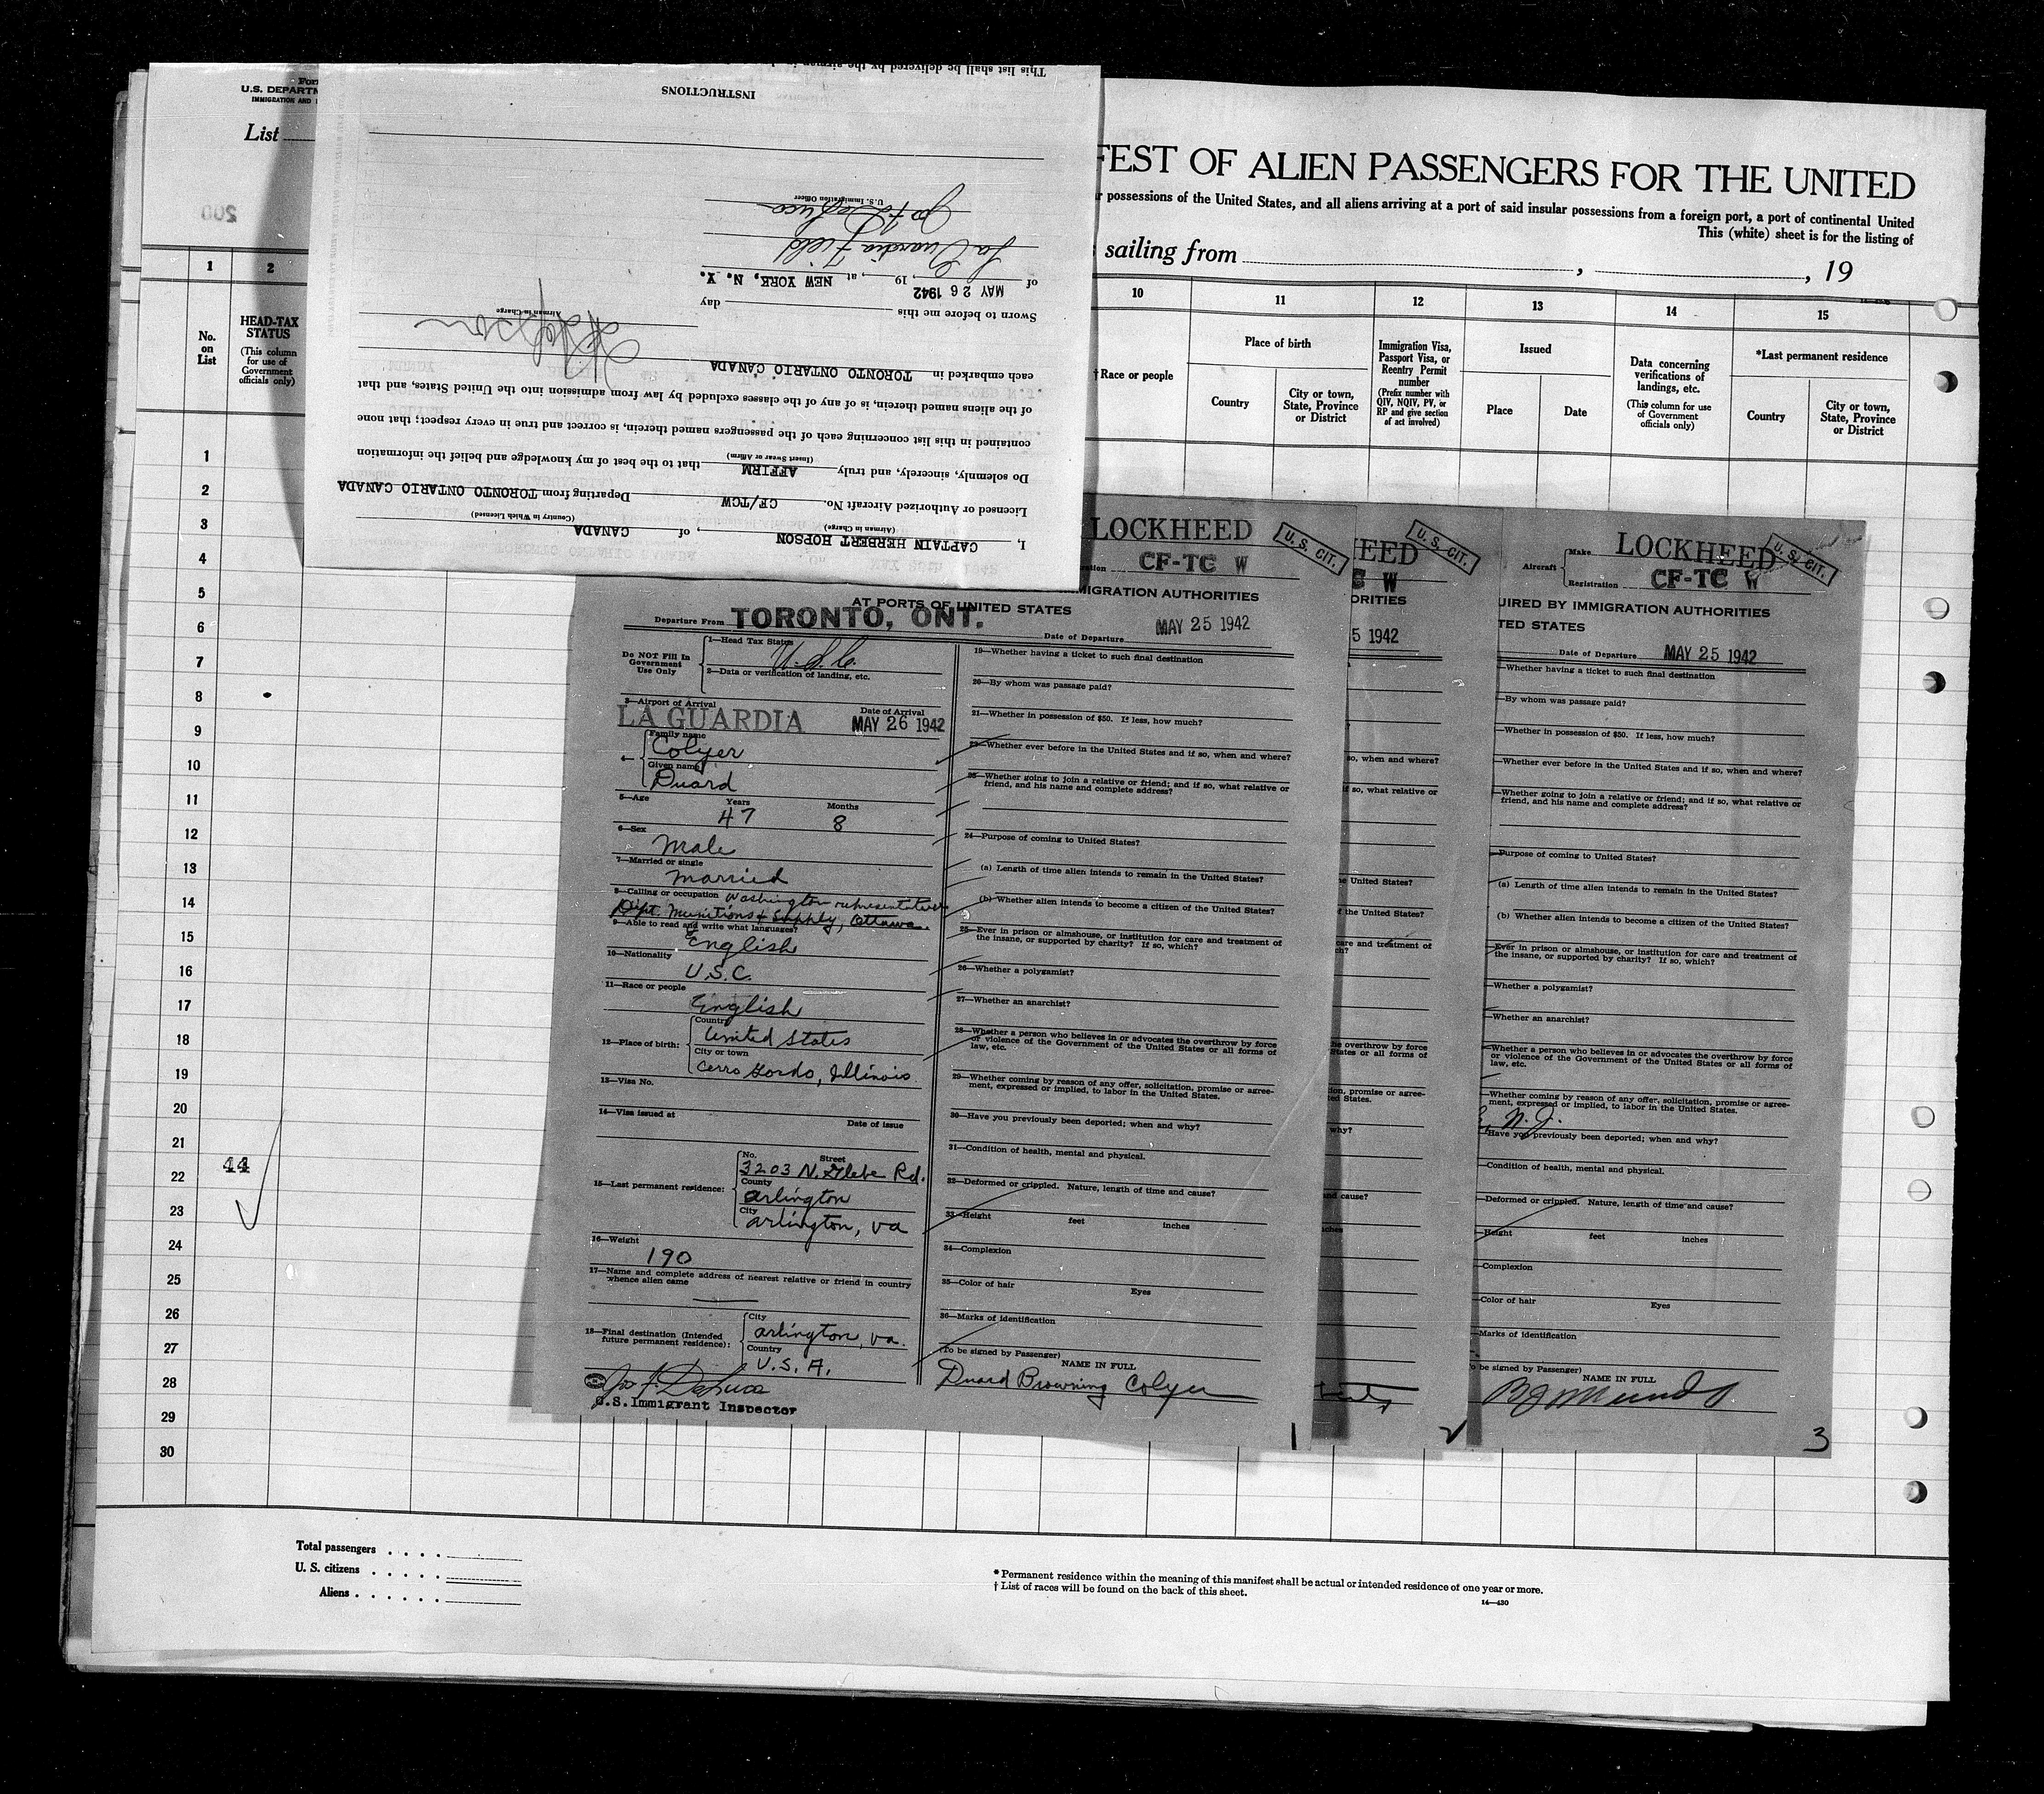 Form
U.S. DEPARTN
IMMIGRATION AND
List
200
FEST OF ALIEN PASSENGERS FOR THE UNITED
r possessions of the United States, and all aliens arriving at a port of said insular possessions from a foreign port, a port of continental United
This (white) sheet is for the listing of
sailing from , , 19
1 2 10 11 12 13 14 15
No. on List
HEAD-TAX STATUS
(This column for use of Government officials only)
†Race or people
Place of birth
Country
City or town, State, Province or District
Immigration Visa, Passport Visa, or Reentry Permit number
(Prefix number with QIV, NQIV, PV, or RP and give section of act involved)
Issued
Place
Date
Data concerning verifications of landings, etc.
(This column for use of Government officials only)
*Last permanent residence
Country
City or town, State, Province or District
1
2
3
4
5
6
7
8
9
10
11
12
13
14
15
16
17
18
19
20
21
22
23
24
25
26
27
28
29
30
44
I, CAPTAIN HERBERT HOPSON, of CANADA
(Airman in Charge) (Country in Which Licensed)
Licensed or Authorized Aircraft No. CF/TCW Departing from TORONTO ONTARIO CANADA
Do solemnly, sincerely, and truly AFFIRM that to the best of my knowledge and belief the information
(Insert Swear or Affirm)
contained in this list concerning each of the passengers named therein, is correct and true in every respect; that none
of the aliens named therein, is of any of the classes excluded by law from admission into the United States, and that
each embarked in TORONTO ONTARIO CANADA
Airman in Charge
Sworn to before me this day
MAY 26 1942
of , 19 , at NEW YORK, N. Y.
La Guardia Field
U.S. Immigration Officer
INSTRUCTIONS
This list shall be delivered by the airman
LOCKHEED
U. S. CIT.
CF-TC W
MIGRATION AUTHORITIES
AT PORTS OF UNITED STATES
Departure From TORONTO, ONT.
Date of Departure MAY 25 1942
Do NOT Fill In Government Use Only
1—Head Tax Status
U.S.C.
2—Data or verification of landing, etc.
3—Airport of Arrival
LA GUARDIA
Date of Arrival
MAY 26 1942
4—
Family name
Colyer
Given name
Duard
5—Age Years Months
47 8
6—Sex
Male
7—Married or single
Married
8—Calling or occupation Washington representative
Dept. Munitions & Supply, Ottawa.
9—Able to read and write what languages?
English
10—Nationality
U.S.C.
11—Race or people
English
12—Place of birth:
Country
United States
City or town
Cerro Gordo, Illinois
13—Visa No.
14—Visa issued at
Date of issue
15—Last permanent residence:
No. Street
3203 N. Glebe Rd.
County
Arlington
City
Arlington, Va
16—Weight
190
17—Name and complete address of nearest relative or friend in country
whence alien came
18—Final destination (Intended future permanent residence):
City
Arlington, Va.
Country
U.S.A.
U.S. Immigrant Inspector
19—Whether having a ticket to such final destination
20—By whom was passage paid?
21—Whether in possession of $50. If less, how much?
22—Whether ever before in the United States and if so, when and where?
23—Whether going to join a relative or friend; and if so, what relative or
friend, and his name and complete address?
24—Purpose of coming to United States?
(a) Length of time alien intends to remain in the United States?
(b) Whether alien intends to become a citizen of the United States?
25—Ever in prison or almshouse, or institution for care and treatment of
the insane, or supported by charity? If so, which?
26—Whether a polygamist?
27—Whether an anarchist?
28—Whether a person who believes in or advocates the overthrow by force
or violence of the Government of the United States or all forms of
law, etc.
29—Whether coming by reason of any offer, solicitation, promise or agree-
ment, expressed or implied, to labor in the United States.
30—Have you previously been deported; when and why?
31—Condition of health, mental and physical.
32—Deformed or crippled. Nature, length of time and cause?
33—Height feet inches
34—Complexion
35—Color of hair Eyes
36—Marks of identification
(To be signed by Passenger)
NAME IN FULL
Duard Browning Colyer
1
HEED
U. S. CIT.
C W
ORITIES
5 1942
so, when and where?
if so, what relative or
he United States?
f the United States?
care and treatment of
ch?
he overthrow by force
States or all forms of
ion, promise or agree-
ted States.
why?
nd cause?
nches
2
Aircraft
Make LOCKHEED
U. S. CIT.
Registration CF-TC W
UIRED BY IMMIGRATION AUTHORITIES
TED STATES
Date of Departure MAY 25 1942
—Whether having a ticket to such final destination
—By whom was passage paid?
—Whether in possession of $50. If less, how much?
—Whether ever before in the United States and if so, when and where?
—Whether going to join a relative or friend; and if so, what relative or
friend, and his name and complete address?
—Purpose of coming to United States?
(a) Length of time alien intends to remain in the United States?
(b) Whether alien intends to become a citizen of the United States?
—Ever in prison or almshouse, or institution for care and treatment of
the insane, or supported by charity? If so, which?
—Whether a polygamist?
—Whether an anarchist?
—Whether a person who believes in or advocates the overthrow by force
or violence of the Government of the United States or all forms of
law, etc.
—Whether coming by reason of any offer, solicitation, promise or agree-
ment, expressed or implied, to labor in the United States.
N. J.
—Have you previously been deported; when and why?
—Condition of health, mental and physical.
—Deformed or crippled. Nature, length of time and cause?
—Height feet inches
—Complexion
—Color of hair Eyes
—Marks of identification
o be signed by Passenger)
NAME IN FULL
3
Total passengers
U. S. citizens
Aliens
* Permanent residence within the meaning of this manifest shall be actual or intended residence of one year or more.
† List of races will be found on the back of this sheet.
14—430